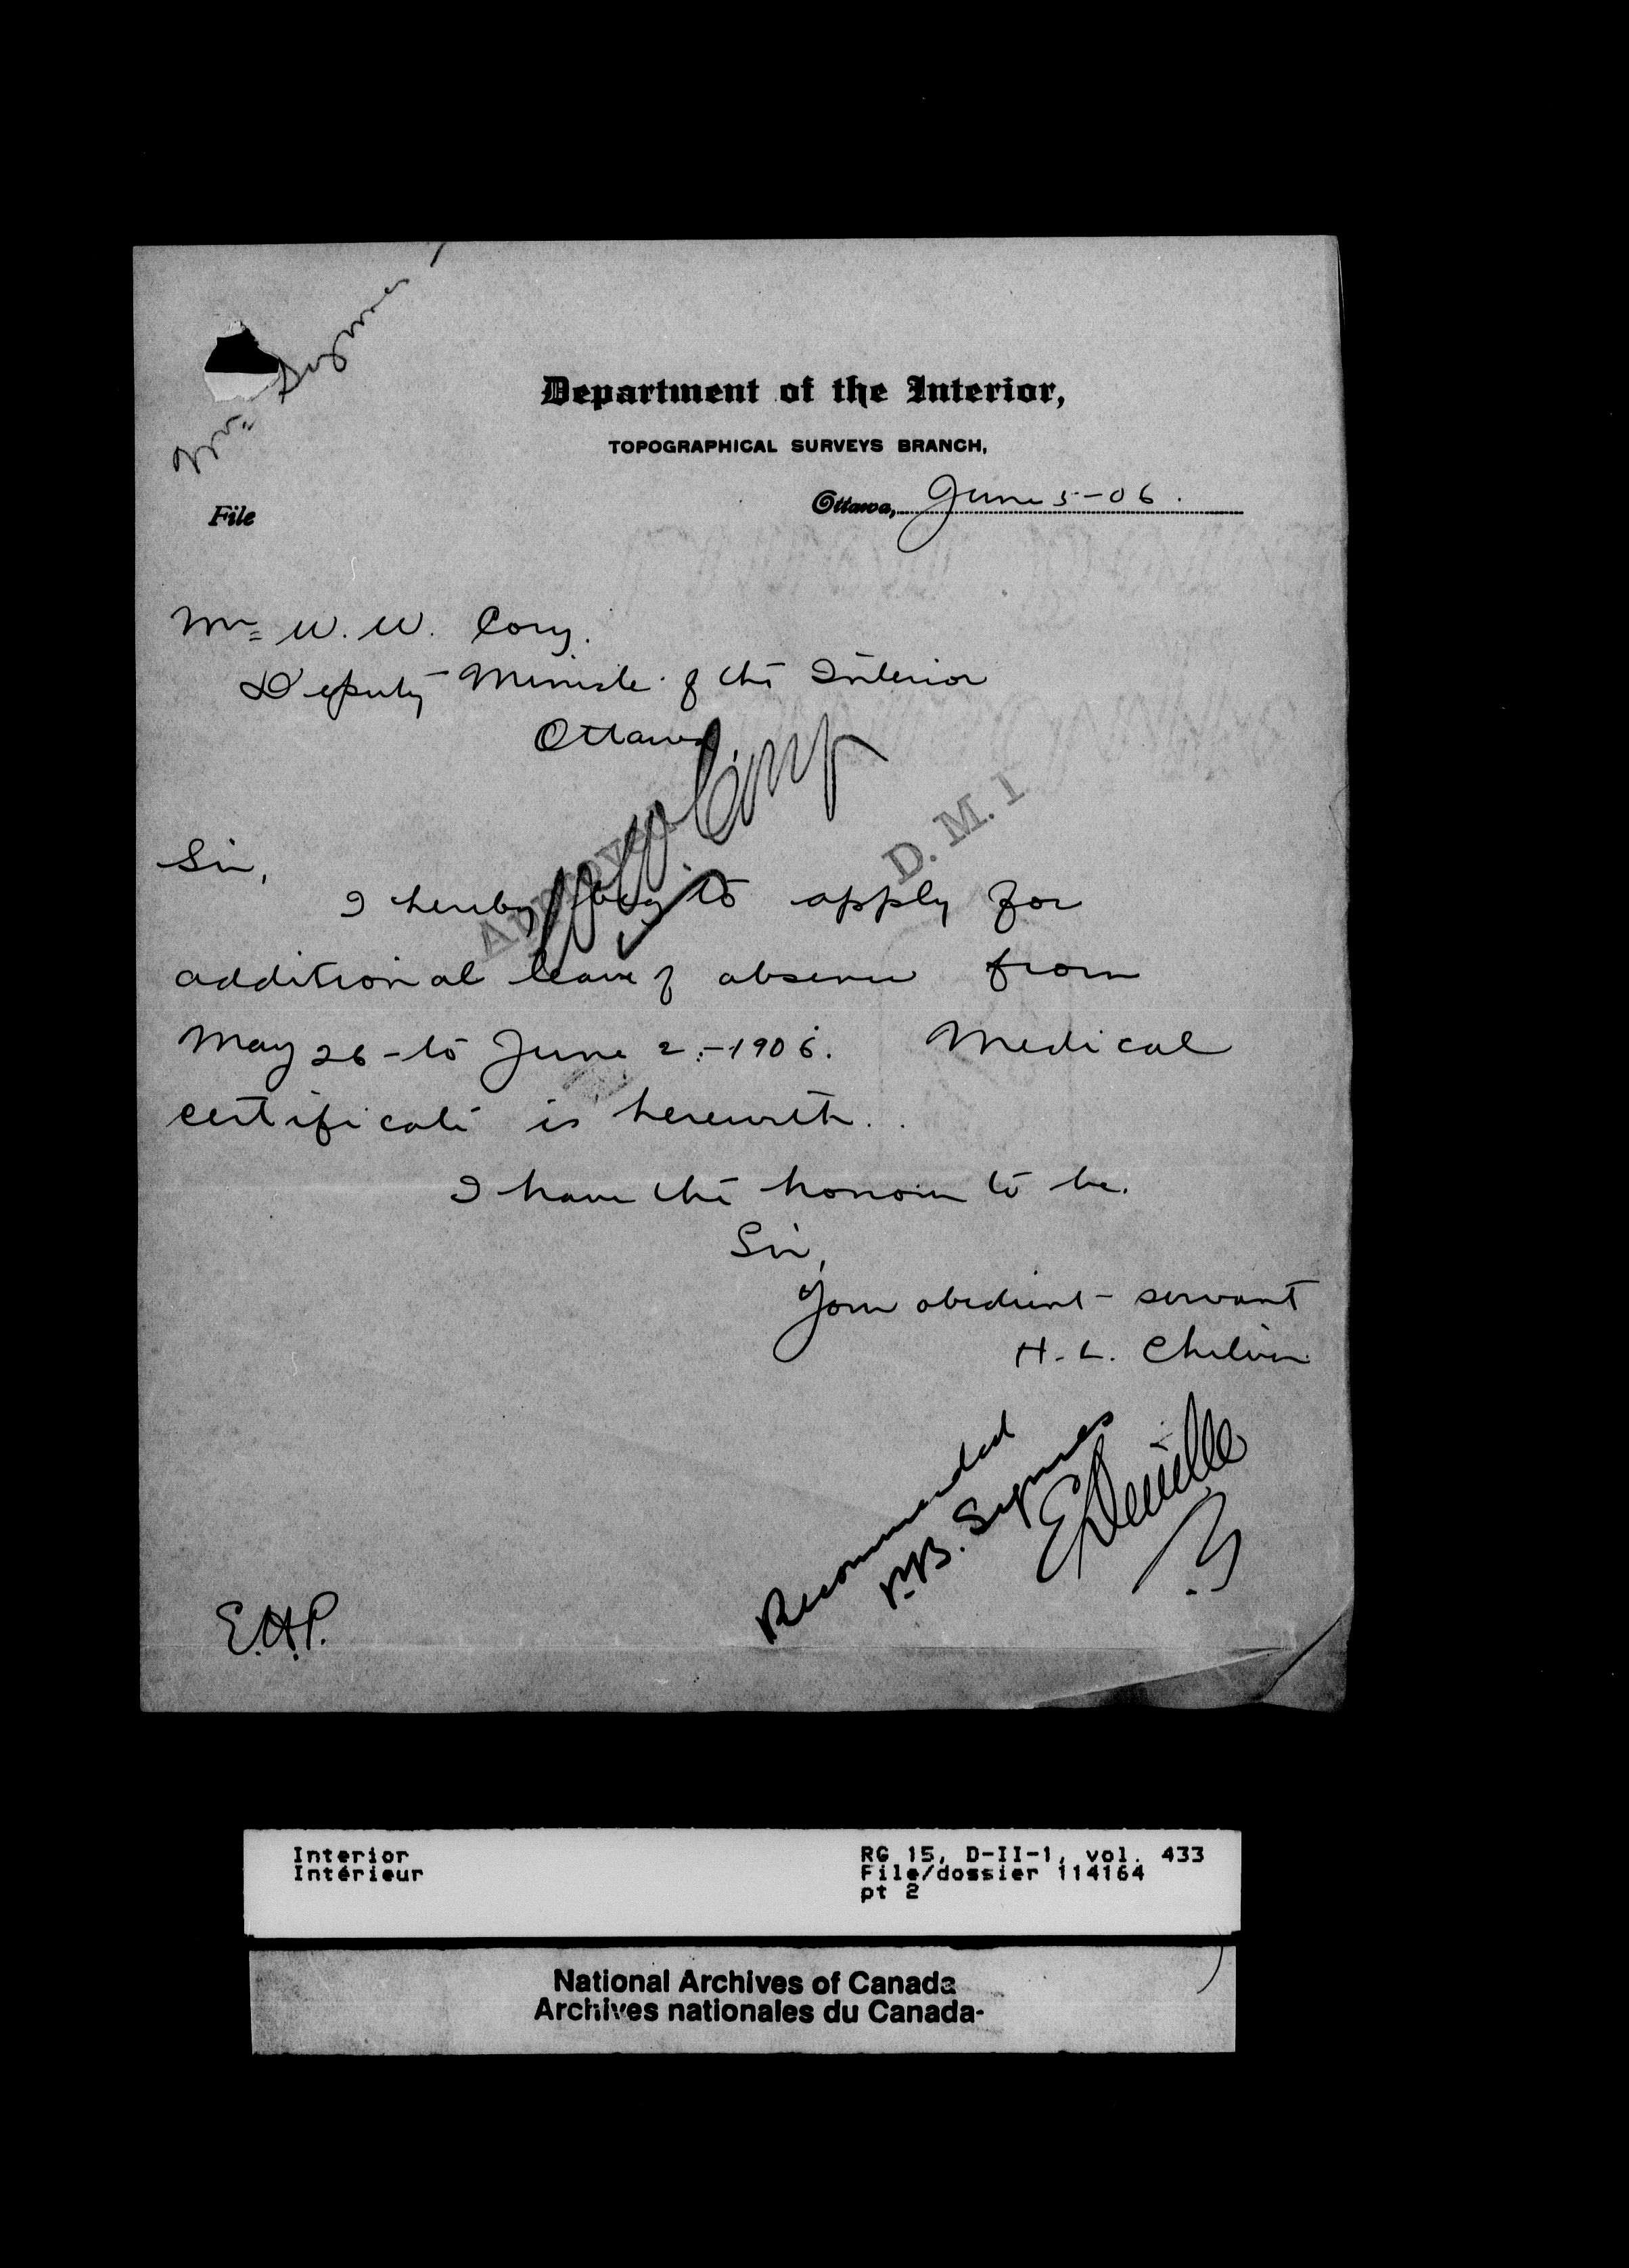 Mr. Symes
Department of the Interior,
TOPOGRAPHICAL SURVEYS BRANCH,
Ottawa, June 5-06.
File
Mr. W. W. Cory.
Deputy Minister of the Interior
Ottawa.
Approved
W. W. Cory
D. M. I
Sir,
I hereby beg to apply for
additional leave of absence from
May 26 - to June 2 - 1906. Medical
certificate is herewith.
I have the honour to be.
Sir,
Your obedient servant
H. L.
Recommended
P. B. Symes
E Deville
E.H.P.
Interior
Intérieur
RG 15, D-II-1, vol. 433
File/dossier 114164
pt 2
National Archives of Canada
Archives nationales du Canada